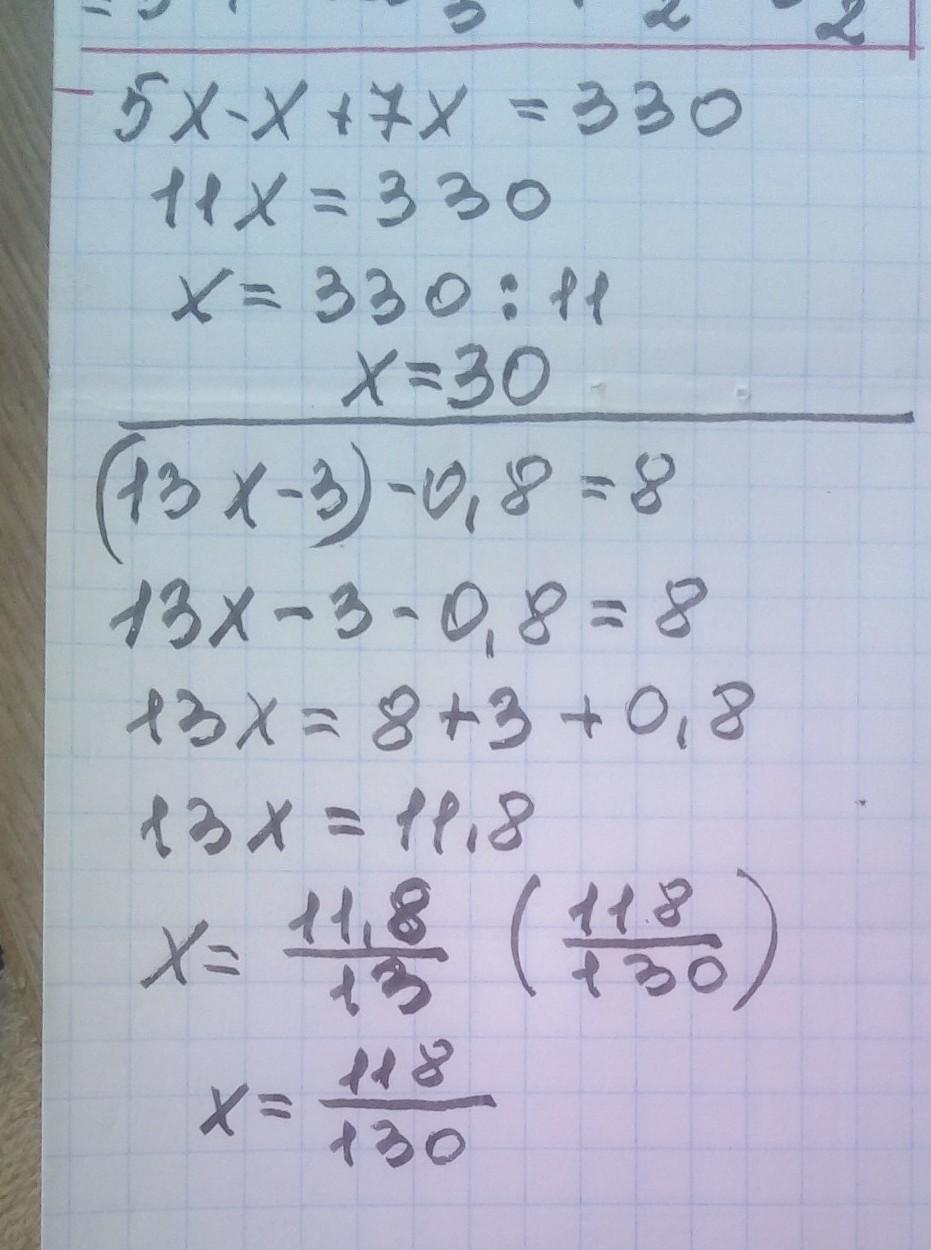 5x-x+7x=330
11x=330
x=330:11
x=30
(13x-3)-0,8=8
13x-3-0,8=8
13x=8+3+0,8
13x=11,8
x=11,8/13 (118/130)
x=118/130